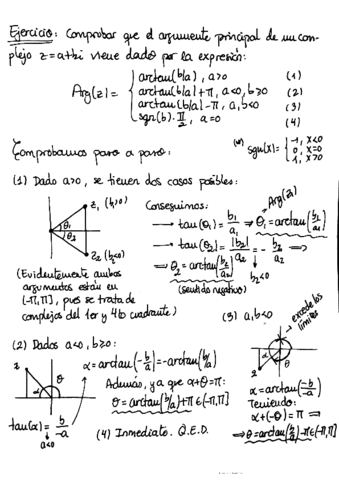 Ejercicio: Comprobar que el argumento principal de un com-
plejo z=a+bi viene dado por la expresión:
Arg(z)= { arctan(b/a), a>0 (1)
arctan(b/a)+π, a<0, b≥0 (2)
arctan(b/a)-π, a,b<0 (3)
sgn(b)·π/2, a=0 (4)
(*) sgn(x)= { -1, x<0
0, x=0
1, x>0
Comprobamos paso a paso:
(1) Dado a>0, se tienen dos casos posibles:
z₁ (b₁>0)
θ₁
θ₂
z₂ (b₂<0)
Conseguimos:
Arg(z₁)
→ tan(θ₁)= b₁/a₁ ⇒ θ₁=arctan(b₁/a₁)
→ tan(θ₂)= |b₂|/a₂ = -b₂/a₂ ⇒
b₂<0
⇒ θ₂=arctan(b₂/a₂)
(sentido negativo)
(Evidentemente ambos
argumentos están en
(-π,π], pues se trata de
complejos del 1er y 4to cuadrante)
(2) Dados a<0, b≥0:
z
α
θ
tan(α)= b/-a
a<0
α=arctan(-b/a)=-arctan(b/a)
Además, ya que α+θ=π:
θ=arctan(b/a)+π∈(-π,π]
(4) Inmediato. Q.E.D.
(3) a,b<0
excede los
límites
α
θ
z
α=arctan(-b/-a)
Teniendo:
α+(-θ)=π ⇒
⇒ θ=arctan(b/a)-π∈(-π,π]